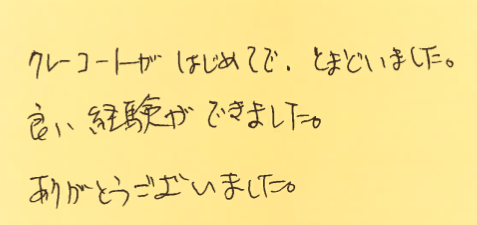 クレーコートが はじめてで、とまどいました。
良い 経験が できました。
ありがとうございました。